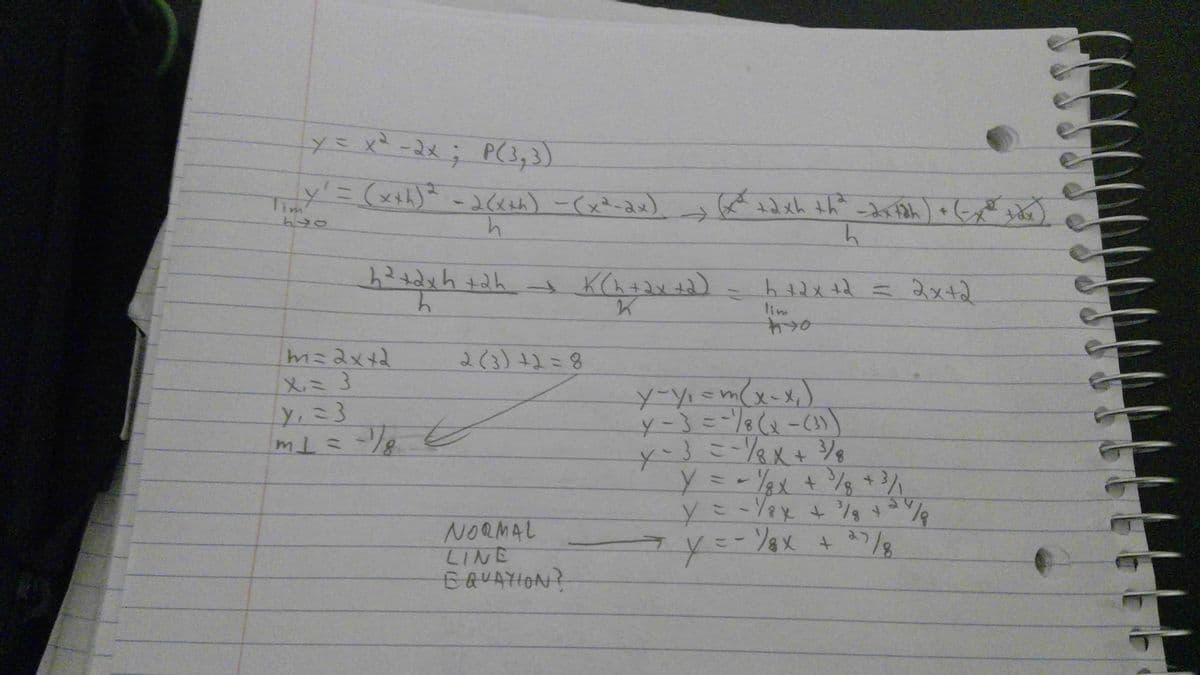 y = x² - 2x ; P(3,3)
lim h→0 y' = (x+h)² - 2(x+h) - (x² - 2x) / h → (x² + 2xh + h² - 2x + 2h) + (-x² + 2x) / h
h² + 2xh + 2h / h → h(h + 2x + 2) / h = h + 2x + 2 lim h→0 = 2x + 2
m = 2x+2 2(3) + 2 = 8
x₁ = 3
y₁ = 3
m⊥ = -1/8
y - y₁ = m(x - x₁)
y - 3 = -1/8(x - (3))
y - 3 = -1/8x + 3/8
y = -1/8x + 3/8 + 3/1
y = -1/8x + 3/8 + 24/8
NORMAL LINE EQUATION? → y = -1/8x + 27/8